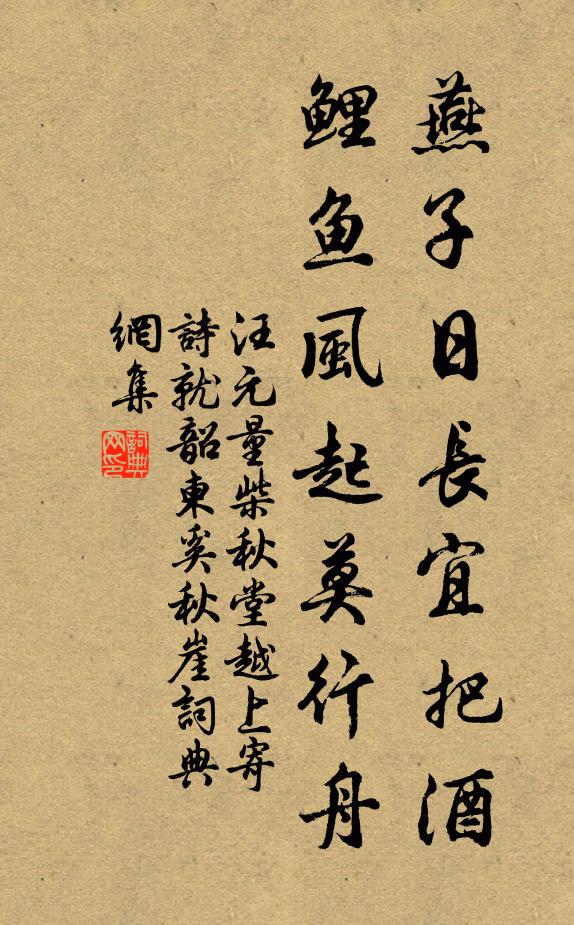 燕子日長宜把酒
鯉鱼風起莫行舟
汪元量柴秋堂越上寄
詩就韶東奚秋崖詞典
網集
詞典网印